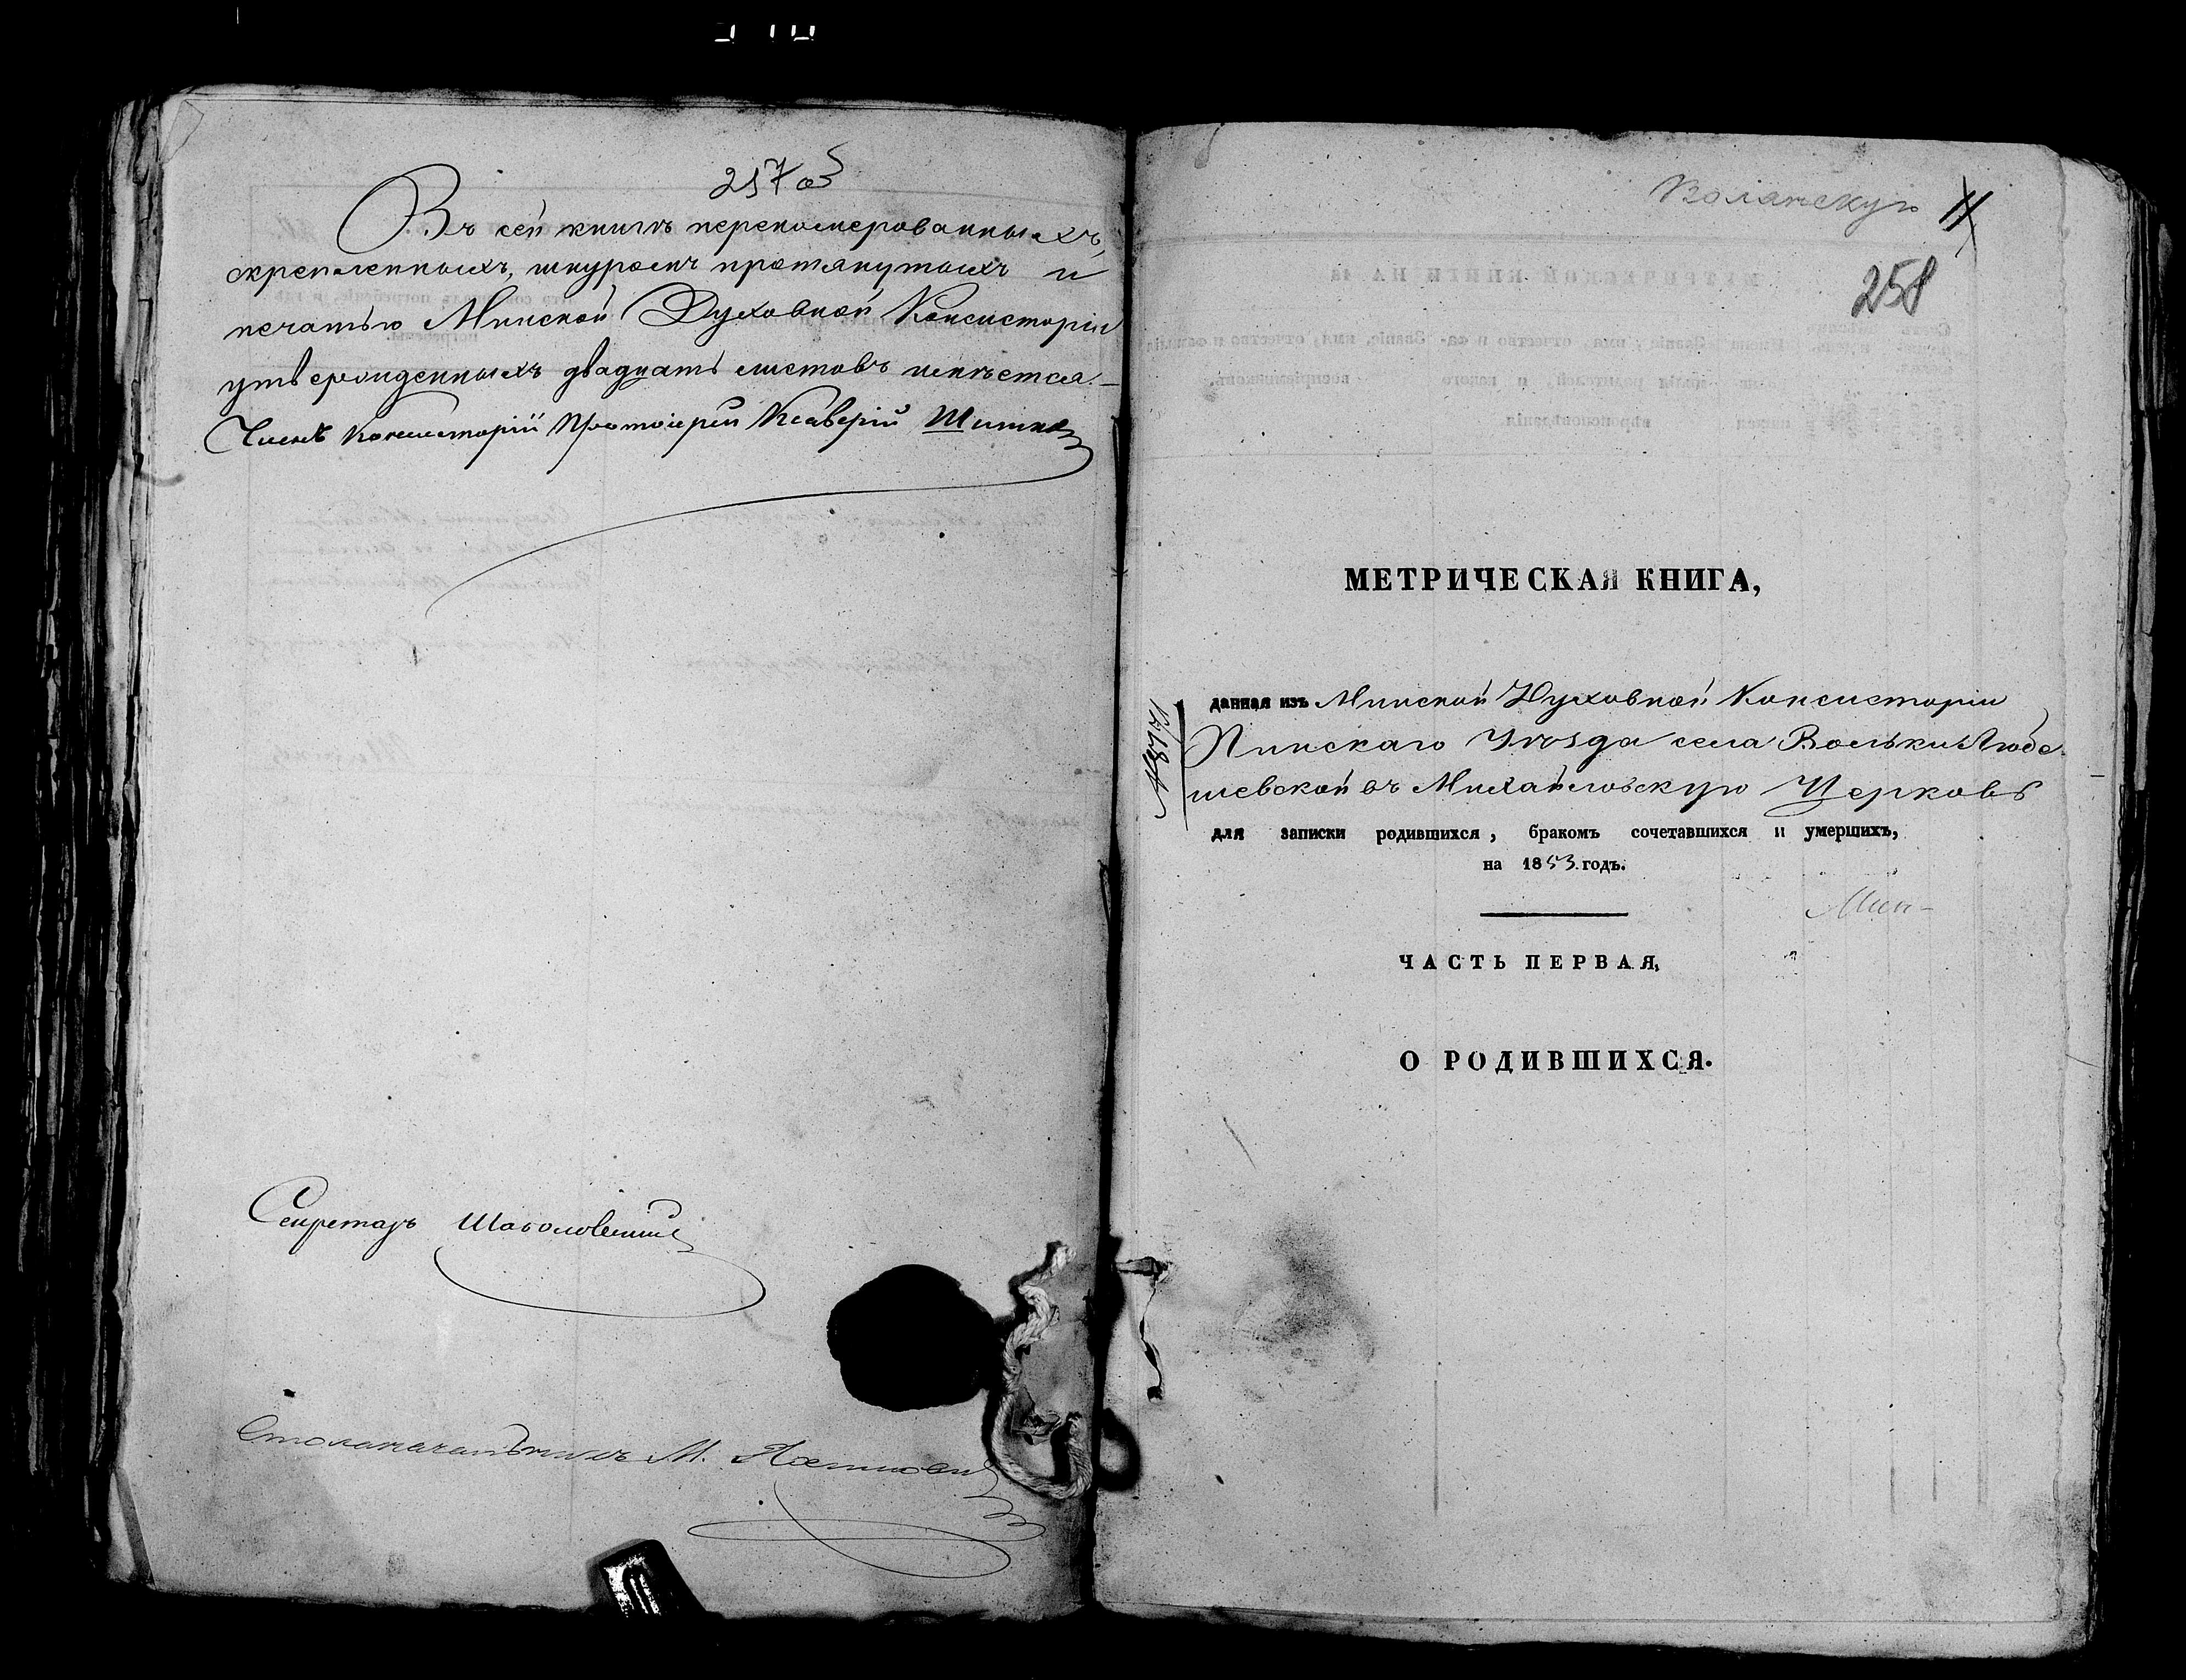 257 об
Въ сей книгѣ перенумерованныхъ,
скрепленныхъ, шнуромъ протянутыхъ и
печатью Минской Духовной Консисторіи
утвержденныхъ двадцать листовъ имѣется.—
Членъ Консисторіи Протоіерей Ксаверій
Секретарь
Столоначальникъ М.
258
МЕТРИЧЕСКАЯ КНИГА,
данная изъ Минской Духовной Консисторіи
Пинскаго Уѣзда села Вольки Любе-
шевской въ Михайловскую Церковь
для записки родившихся, бракомъ сочетавшихся и умершихъ,
на 1853 годъ.
Мин-
ЧАСТЬ ПЕРВАЯ,
О РОДИВШИХСЯ.